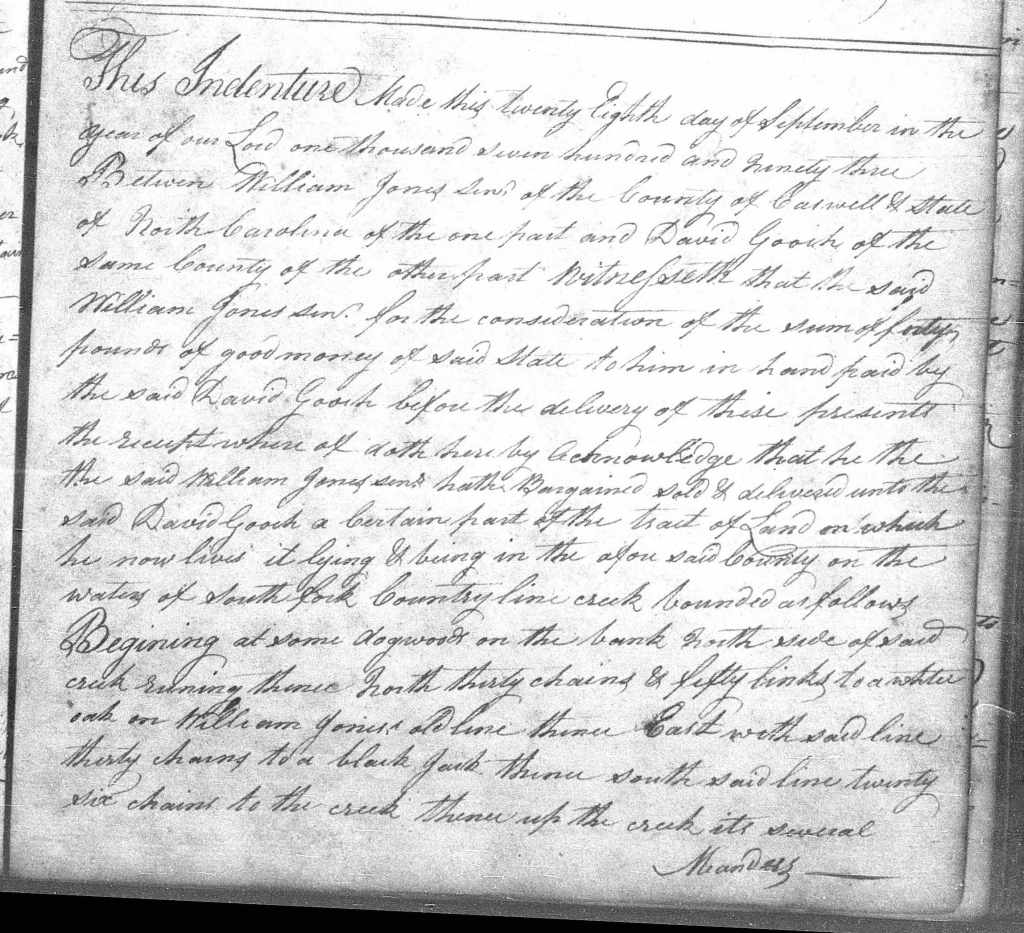 This Indenture Made this twenty Eighth day of September in the
year of our Lord one thousand seven hundred and ninety three
Betwen William Jones senr. of the County of Caswell & State
of North Carolina of the one part and David Gooch of the
same County of the other part Witnesseth that the said
William Jones senr. for the consideration of the sum of
pounds of good money of said State to him in hand paid by
the said David Gooch before the delivery of these presents
the receipt where of doth here by Acknowledge that he the
the said William Jones senr. hath Bargained sold & delivered unto the
said David Gooch a Certain part of the tract of Land on which
he now lives it lying & being in the afore said County on the
waters of South fork Country line creek bounded as follows
Begining at some dogwoods on the bank North side of said
creek runing thence North thirty chains & fifty links to a white
oak on William Jones's old line thence East with said line
thirty chains to a black Jack thence south said line twenty
six chains to the creek thence up the creek its several
Meanders